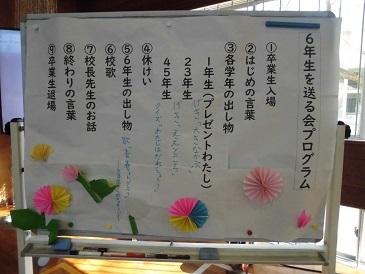 6年生を送る会プログラム
①卒業生入場
②はじめの言葉
③各学年の出し物
1年生(プレゼントわたし)
23年生
げき「大きなかぶ」
45年生
④休けい
⑤6年生の出し物
⑥校歌
⑦校長先生のお話
⑧終わりの言葉
⑨卒業生退場